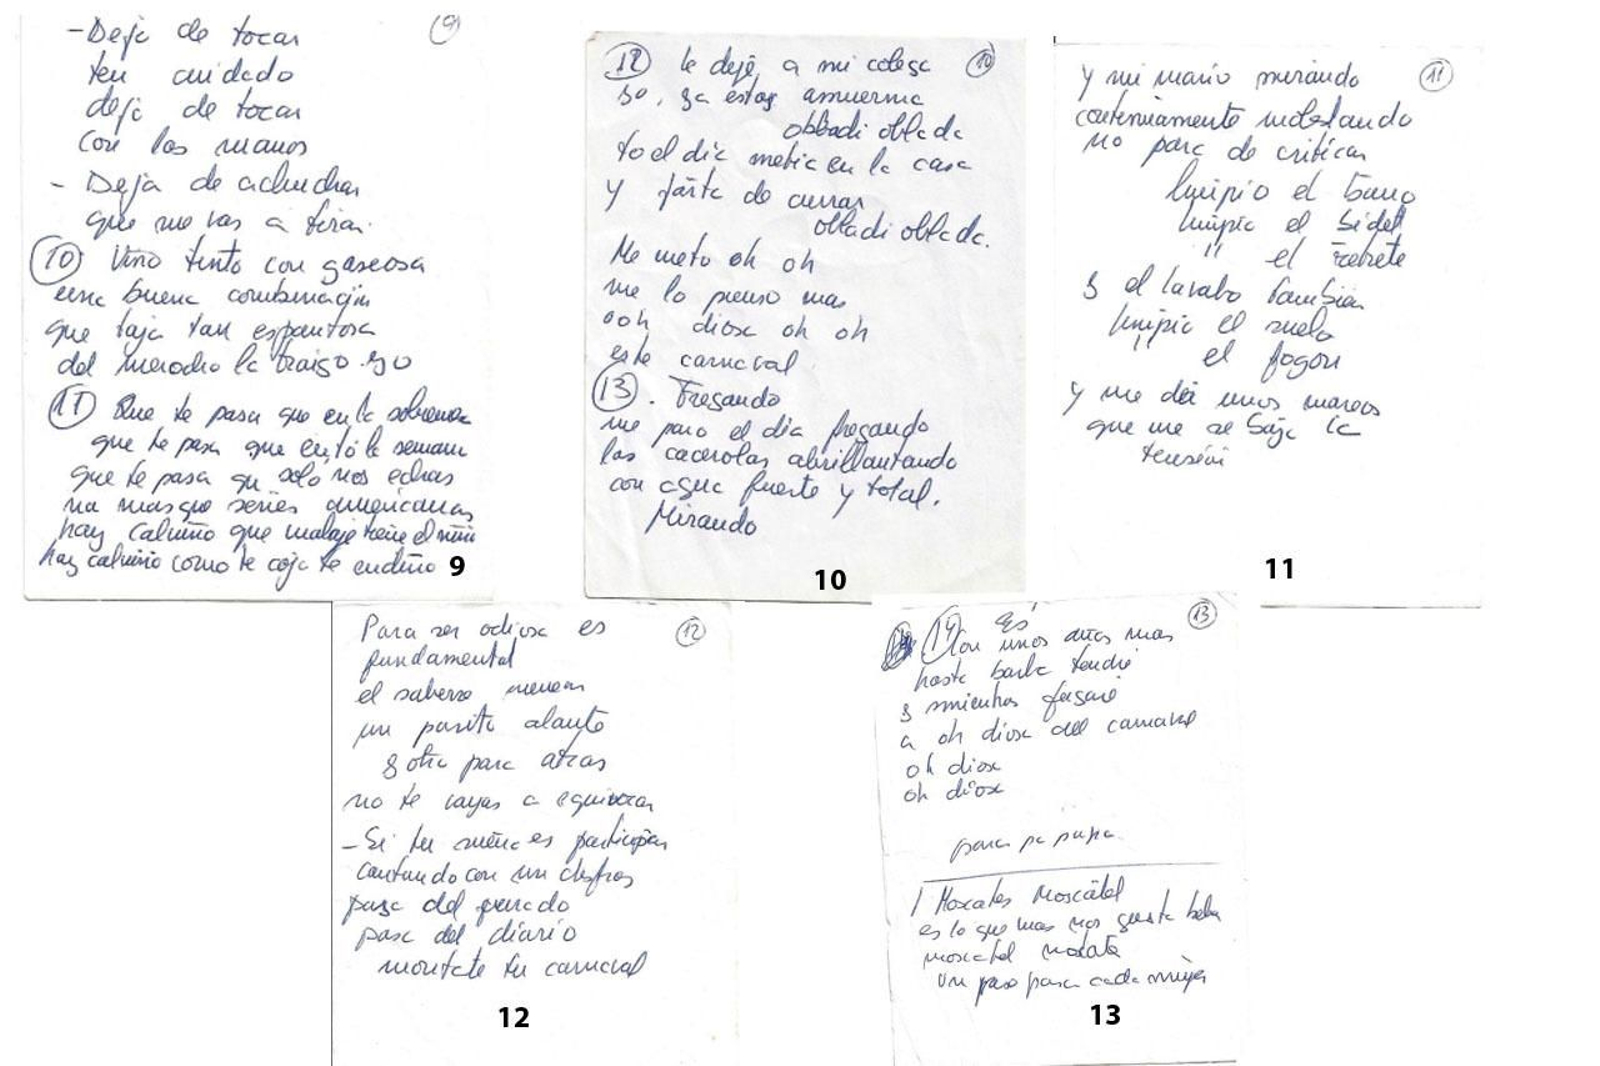 9
- Deja de tocar
ten cuidado
deja de tocar
con las manos
- Deja de achuchar
que me vas a tirar.
10 Vino tinto con gaseosa
una buena combinación
que taja tan espantosa
del merodio la traigo yo
11 Que te pasa que en la sobremesa
que te pasa que en tó la semana
que te pasa qu solo nos echas
na mas que series americanas
hay Calviño que malaje tiene el niño
hay calviño como te coja te endiño
9
12 le dejé a mi colesc 10
so, ya estoy amuerma
obladi oblada
to el dia metia en la casa
y jarta de currar
obladi oblada.
Me meto oh oh
me lo pienso mas
ooh diosa oh oh
este carnaval.
13. Fregando
me paso el dia fregando
las cacerolas abrillantando
con agua fuerte y total.
Mirando
10
y mi mario mirando 11
continiamente molestando
no para de criticar
limpio el bano
limpia el bidel
" el retrete
y el lavabo tambien
limpia el suelo
" el fogon
y me da unos mareos
que me se baja la
tension
11
Para ser odiosa es 12
fundamental
el saberse menear
un pasito alante
y otro para atras
no te vayas a equivocar
- Si tu sueño es participar
cantando con un disfras
pasa del jurado
pasa del diario
montate tu carnaval
12
13
14 Es
Con unos años mas
hasta barba tendré
y mientras jugaré
a oh diosa del carnaval
oh diosa
oh diosa
para pa papa
1 Moscatel Moscatel
es lo que mas nos gusta beber
moscatel
un paso para cada mujer
13